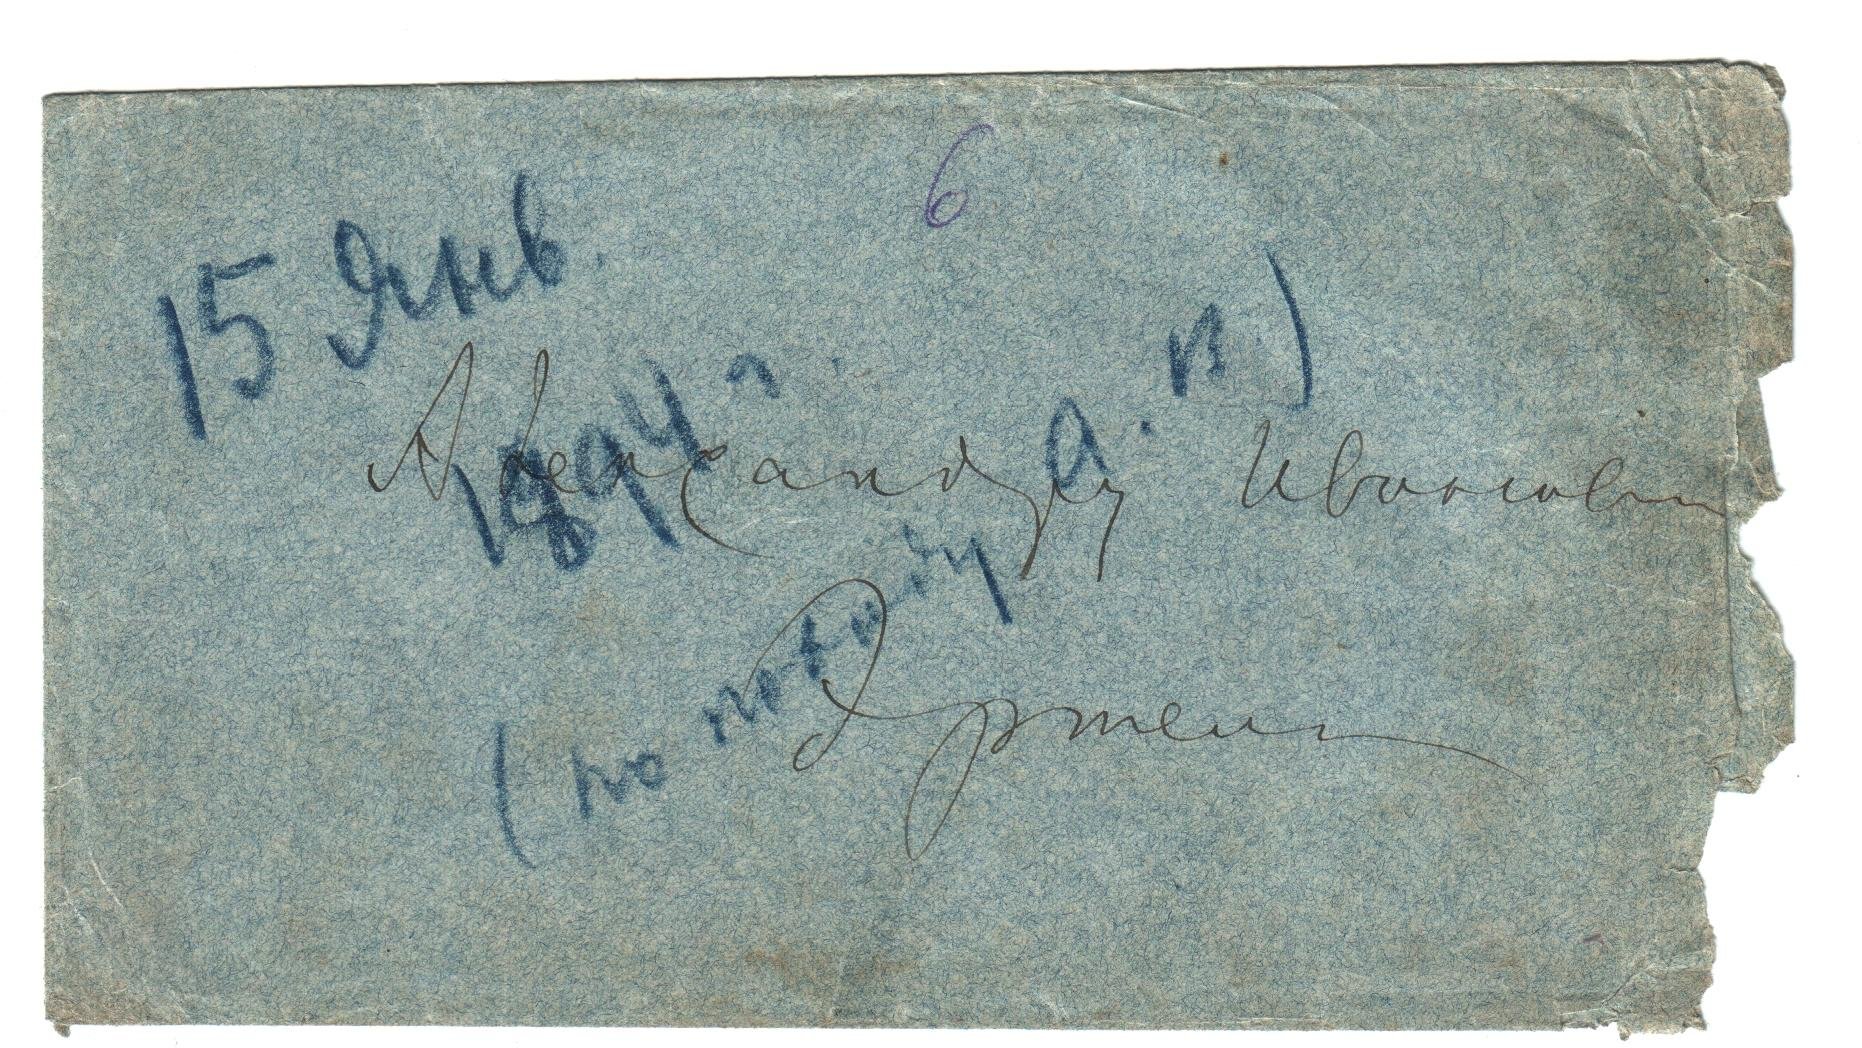 6
15 Янв.
1894 г.
Александру Ивановичу
Эртелю
(по